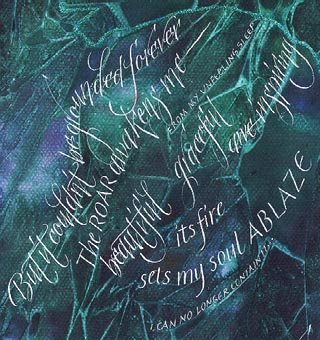 But it couldn't be grounded forever
The ROAR awakens me —
FROM MY UNFEELING SLEEP
beautiful graceful awe-inspiring
its fire
sets my soul ABLAZE
I CAN NO LONGER CONTAIN IT...